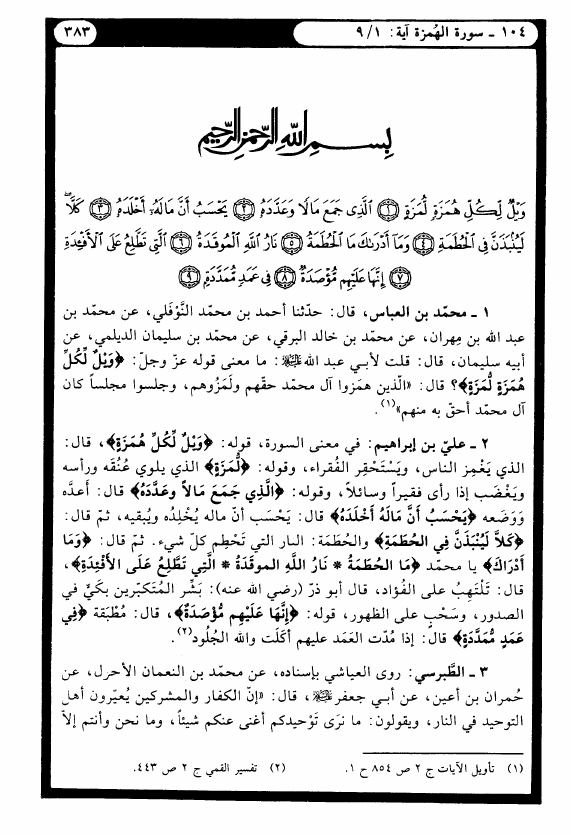 ١٠٤ ـ سورة الهُمزة آية: ٩/١
٣٨٣
بِسْمِ اللَّهِ الرَّحْمَنِ الرَّحِيمِ
وَيْلٌ لِّكُلِّ هُمَزَةٍ لُّمَزَةٍ ﴿١﴾ الَّذِى جَمَعَ مَالًا وَعَدَّدَهُ ﴿٢﴾ يَحْسَبُ أَنَّ مَالَهُۥ أَخْلَدَهُ ﴿٣﴾ كَلَّا
لَيُنۢبَذَنَّ فِى الْحُطَمَةِ ﴿٤﴾ وَمَآ أَدْرَىٰكَ مَا الْحُطَمَةُ ﴿٥﴾ نَارُ اللَّهِ الْمُوقَدَةُ ﴿٦﴾ الَّتِى تَطَّلِعُ عَلَى الْأَفْـِٔدَةِ
﴿٧﴾ إِنَّهَا عَلَيْهِم مُّؤْصَدَةٌ ﴿٨﴾ فِى عَمَدٍ مُّمَدَّدَةٍ ﴿٩﴾
١ ـ محمّد بن العباس، قال: حدّثنا أحمد بن محمّد النَّوْفَلي، عن محمّد بن
عبد الله بن مِهران، عن محمّد بن خالد البرقي، عن محمّد بن سليمان الديلمي، عن
أبيه سليمان، قال: قلت لأبي عبد الله عليه السلام: ما معنى قوله عزّ وجلّ: ﴿وَيْلٌ لِّكُلِّ
هُمَزَةٍ لُّمَزَةٍ﴾؟ قال: «الّذين همَزوا آل محمّد حقّهم ولَمَزُوهم، وجلسوا مجلساً كان
آل محمّد أحقّ به منهم»(١).
٢ ـ عليّ بن إبراهيم: في معنى السورة، قوله: ﴿وَيْلٌ لِّكُلِّ هُمَزَةٍ﴾، قال:
الذي يَغْمِز الناس، ويَسْتَحْقِر الفُقراء، وقوله: ﴿لُّمَزَةٍ﴾ الذي يلوي عُنُقَه ورأسه
ويَغْضَب إذا رأى فقيراً وسائلاً، وقوله: ﴿الَّذِي جَمَعَ مَالاً وعَدَّدَهُ﴾ قال: أعدَّه
وَوَضَعه ﴿يَحْسَبُ أَنَّ مَالَهُ أَخْلَدَهُ﴾ قال: يَحْسَب أنّ ماله يُخْلِدُه ويُبقيه، ثمّ قال:
﴿كَلاَّ لَيُنْبَذَنَّ فِي الحُطَمَةِ﴾ والحُطَمَة: النار التي تَحْطِم كلّ شيء. ثمّ قال: ﴿وَمَا
أدْرَاكَ﴾ يا محمّد ﴿مَا الحُطَمَةُ * نَارُ اللَّهِ الموقَدَةُ * الَّتِي تَطَّلِعُ عَلَى الأَفْئِدَةِ﴾،
قال: تَلْتَهِبُ على الفُؤاد، قال أبو ذرّ (رضي الله عنه): بَشِّر المُتكبّرين بكَيٍّ في
الصدور، وسَحْبٍ على الظهور، قوله: ﴿إِنَّهَا عَلَيْهِم مُؤْصَدَةٌ﴾، قال: مُطْبَقة ﴿فِي
عَمَدٍ مُمَدَّدَةٍ﴾ قال: إذا مُدّت العَمَد عليهم أكلَت والله الجُلود(٢).
٣ ـ الطَّبرسي: روى العياشي بإسناده، عن محمّد بن النعمان الأحول، عن
حُمران بن أعين، عن أبي جعفر عليه السلام، قال: «إنّ الكفار والمشركين يُعيّرون أهل
التوحيد في النار، ويقولون: ما نرَى تَوْحيدكم أغنى عنكم شيئاً، وما نحن وأنتم إلاّ
(١) تأويل الآيات ج ٢ ص ٨٥٤ ح ١.
(٢) تفسير القمي ج ٢ ص ٤٤٣.